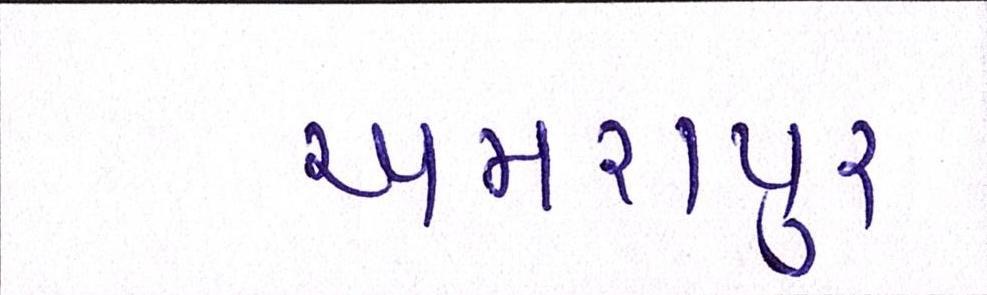 અમરાપુર